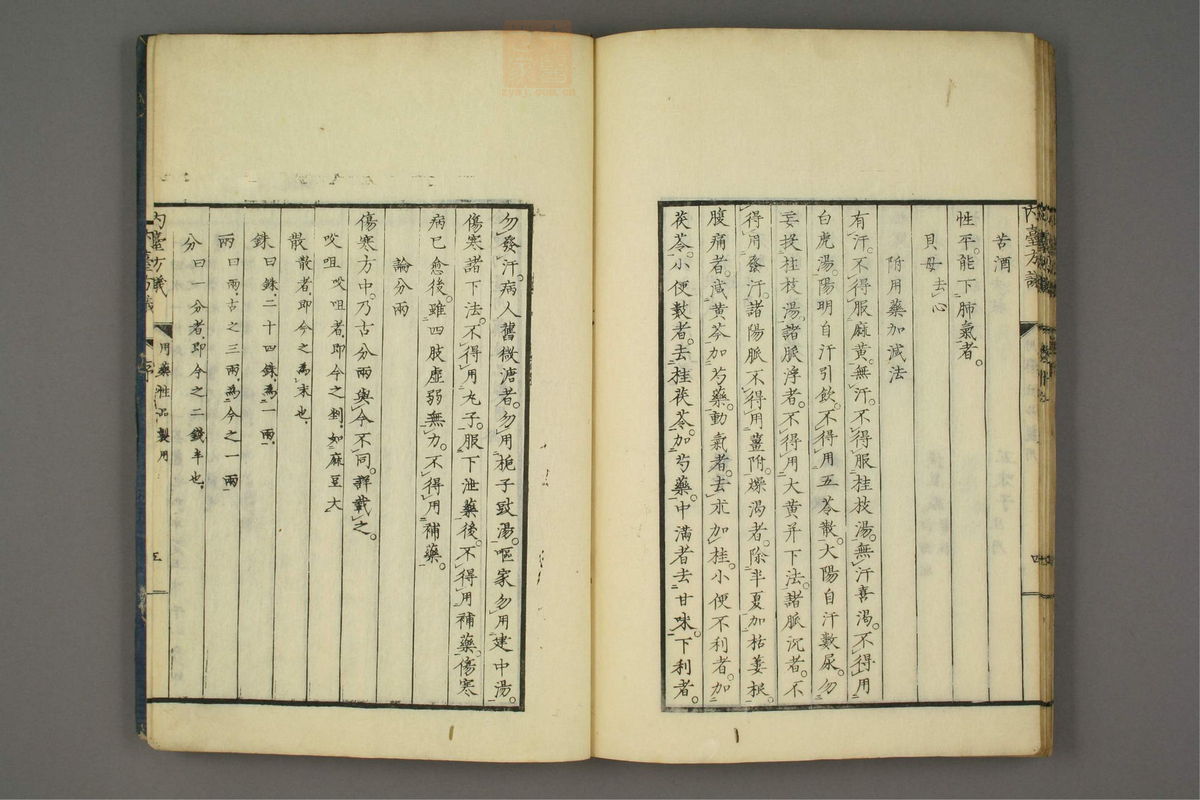 苦酒
性平。能下肺氣者。
貝母去心
附用藥加減法
有汗。不得服麻黄。無汗。不得服桂枝湯。無汗喜渇。不得用
白虎湯。陽明自汗引飲。不得用五苓散。大陽自汗數尿。勿
妄投桂枝湯。諸脈浮者。不得用大黄并下法。諸脈沉者。不
得用發汗。諸陽脈不得用薑附。燥渴者。除半夏加栝蔞根。
腹痛者。減黄芩加芍藥。動氣者。去朮加桂。小便不利者。加
茯苓。小便數者。去桂茯苓。加芍藥。中滿者去甘味。下利者。
勿發汗。病人舊微溏者。勿用梔子豉湯。嘔家勿用建中湯。
傷寒諸下法。不得用丸子。服下泄藥後。不得用補藥。傷寒
病已愈後。雖四肢虚弱無力。不得用補藥。
論分兩
傷寒方中。乃古分兩與今不同。詳載之。
㕮咀㕮咀者即今之剉如麻豆大
散散者即今之為末也
銖曰銖二十四銖為一兩
兩曰兩古之三兩為今之一兩
分曰一分者即今之二錢半也
内臺方議
用藥性品製用
三
zysj.com.cn